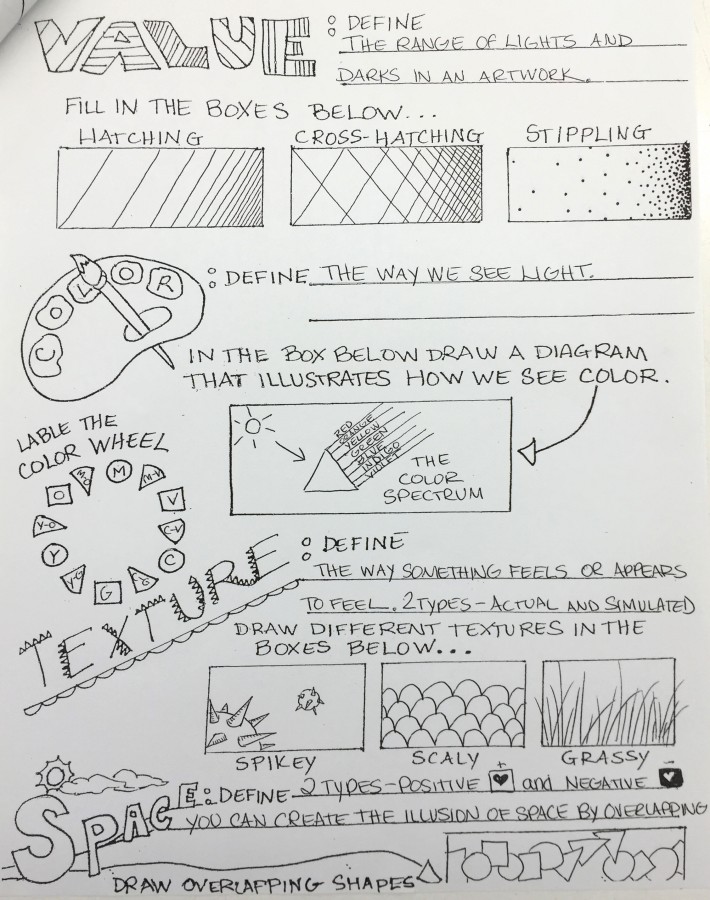 VALUE : DEFINE
THE RANGE OF LIGHTS AND
DARKS IN AN ARTWORK.
FILL IN THE BOXES BELOW...
HATCHING CROSS-HATCHING STIPPLING
COLOR : DEFINE THE WAY WE SEE LIGHT.
IN THE BOX BELOW DRAW A DIAGRAM
THAT ILLUSTRATES HOW WE SEE COLOR.
LABLE THE
COLOR WHEEL
M
M-V
V
C-V
C
G
Y-G
Y
Y-O
O
RED
ORANGE
YELLOW
GREEN
BLUE
INDIGO
VIOLET
THE
COLOR
SPECTRUM
TEXTURE : DEFINE
THE WAY SOMETHING FEELS OR APPEARS
TO FEEL. 2 TYPES - ACTUAL AND SIMULATED
DRAW DIFFERENT TEXTURES IN THE
BOXES BELOW...
SPIKEY SCALY GRASSY
SPACE : DEFINE 2 TYPES - POSITIVE + and NEGATIVE -
YOU CAN CREATE THE ILLUSION OF SPACE BY OVERLAPPING
DRAW OVERLAPPING SHAPES